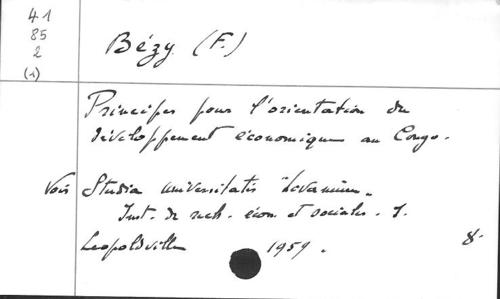 41
85
2
(1)
Bézy (F.)
Principes pour l'orientation du
développement économique au Congo.
Voir Studia Universitatis "Lovanium"
Inst. de rech. écon. et sociales.
Leopoldville 1959. 8°